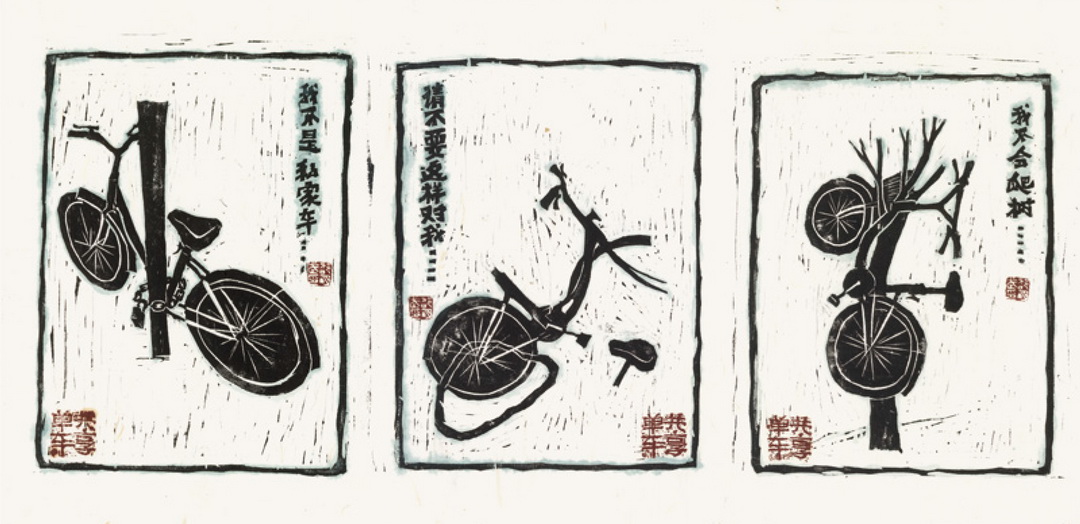 我不是私家车……
共享单车
请不要这样对我……
共享单车
我不会爬树……
共享单车